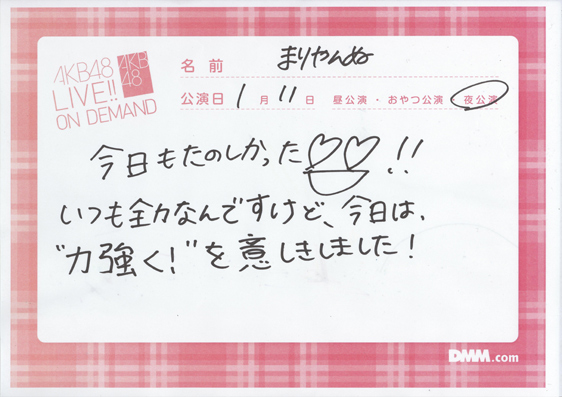 AKB48
LIVE!!
ON DEMAND
AKB
48
名前 まりやんぬ
公演日 1月11日 昼公演・おやつ公演・夜公演
今日もたのしかった!!
いつも全力なんですけど、今日は、
"力強く!"を意しきしました!
DMM.com